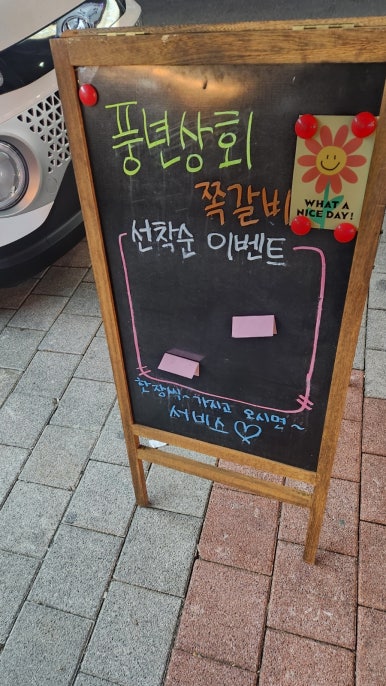 풍년상회
쪽갈비
WHAT A
NICE DAY!
선착순 이벤트
한장씩~ 가지고 오시면~
서비스